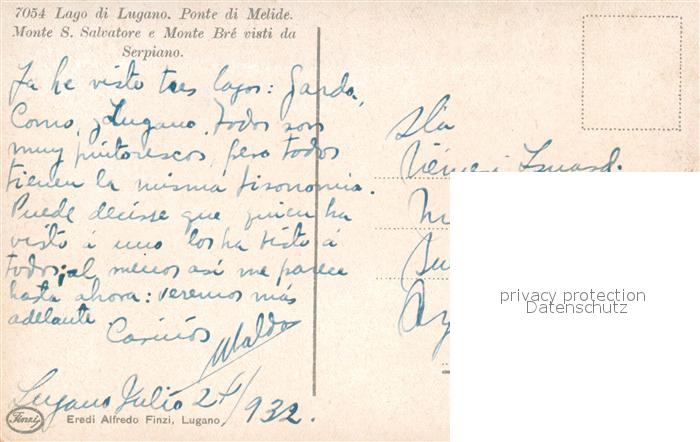 7054 Lago di Lugano. Ponte di Melide.
Monte S. Salvatore e Monte Bré visti da
Serpiano.
Ya he visto tres lagos: Garda,
Como, y Lugano. Todos son
muy pintorescos, pero todos
tienen la misma fisonomía.
Puede decirse que quien ha
visto á uno los ha visto á
todos; al menos así me parece
hasta ahora: veremos más
adelante
Cariños
Waldo
Lugano Julio 24/932.
Finzi
Eredi Alfredo Finzi, Lugano
Sta
privacy protection
Datenschutz